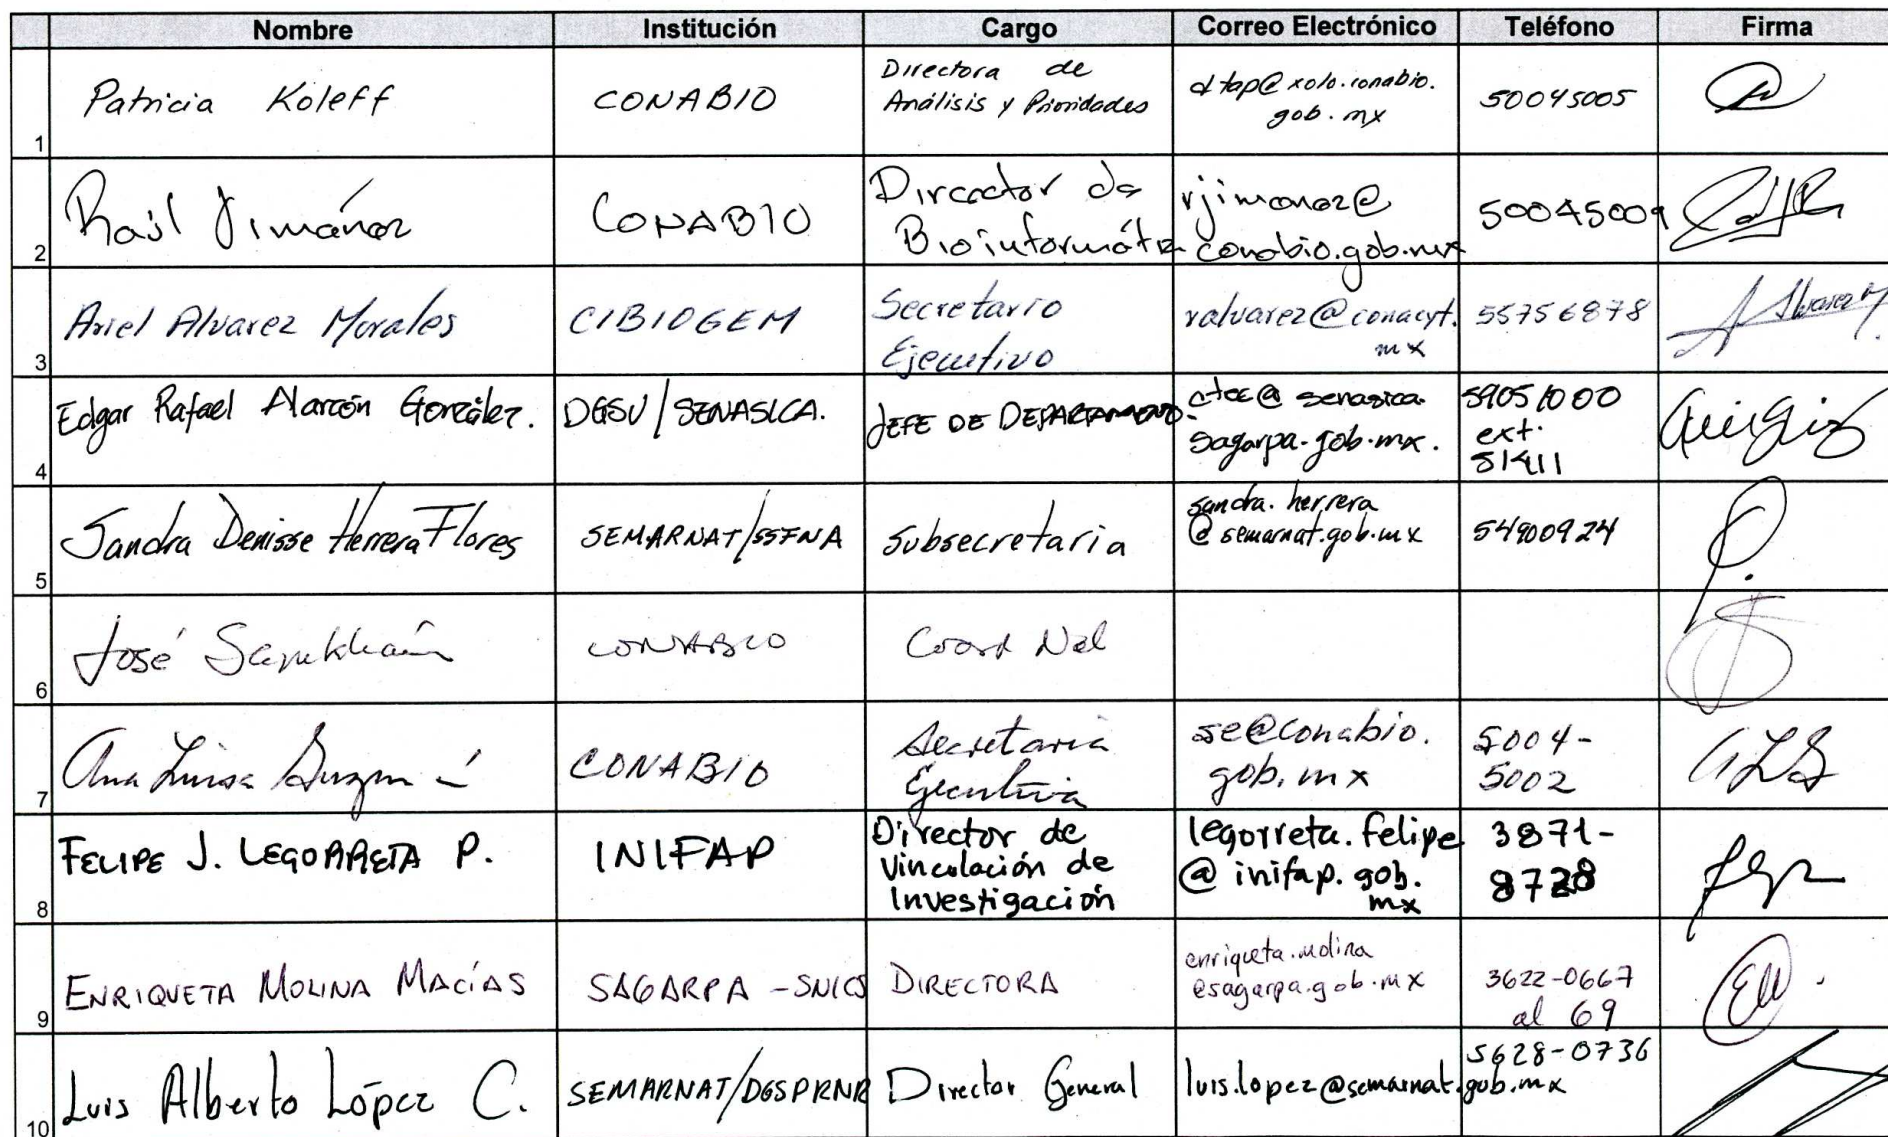 Nombre Institución Cargo Correo Electrónico Teléfono Firma
1 Patricia Koleff CONABIO Directora de Análisis y Prioridades dtap@xolo.conabio.gob.mx 50045005
2 Raúl Jiménez CONABIO Director de Bioinformática rjimenez@conabio.gob.mx 50045009
3 Ariel Alvarez Morales CIBIOGEM Secretario Ejecutivo ralvarez@conacyt.mx 55756878
4 Edgar Rafael Alarcón González. DGSV/SENASICA. JEFE DE DEPARTAMENTO. senasica.sagarpa.gob.mx. 59051000 ext.
5 Sandra Denisse Herrera Flores SEMARNAT/SSFNA Subsecretaria sandra.herrera@semarnat.gob.mx 54900924
6 José Sarukhán CONABIO Coord Nal
7 Ana Luisa Guzmán CONABIO Secretaria Ejecutiva se@conabio.gob.mx 5004-5002
8 FELIPE J. LEGORRETA P. INIFAP Director de Vinculación de Investigación legorreta.felipe@inifap.gob.mx 3871-8728
9 ENRIQUETA MOLINA MACÍAS SAGARPA-SNICS DIRECTORA enriqueta.molina@sagarpa.gob.mx 3622-0667 al 69
10 Luis Alberto López C. SEMARNAT/DGSPRNR Director General luis.lopez@semarnat.gob.mx 5628-0736